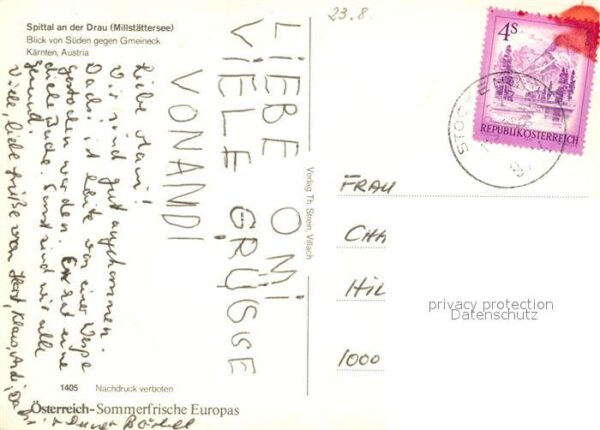 Spittal an der Drau (Millstättersee)
Blick von Süden gegen Gmeineck
Kärnten, Austria
23.8.
4S
REPUBLIK ÖSTERREICH
LIEBE OMI
VIELE GRÜSSE
VON ANDI
Liebe Mami!
Wir sind gut angekommen.
Dadi ist heute von einer Wespe
gestochen worden. Er hat eine
dicke Backe. Sonst sind wir alle
gesund.
Viele, liebe Grüße von Horst, Klaus, Andi, Dadi
+ Deiner Bärbel
Verlag Th. Strein, Villach
FRAU
CHA
HIL
1000
privacy protection
Datenschutz
1405 Nachdruck verboten
Österreich-Sommerfrische Europas